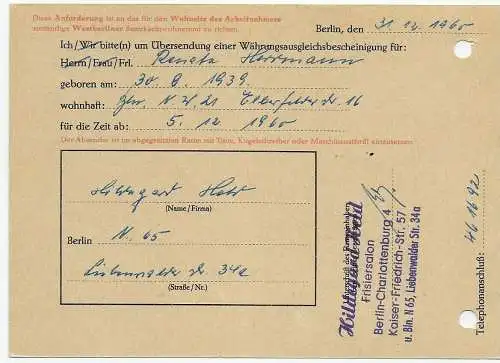 Diese Anforderung ist an das für den Wohnsitz des Arbeitnehmers
zuständige Westberliner Bezirkswohnungsamt zu richten.
Berlin, den 31. 12. 1960
Ich/Wir bitte(n) um Übersendung einer Währungsausgleichsbescheinigung für:
Herrn/Frau/Frl. Renate Herrmann
geboren am: 30. 8. 1939.
wohnhaft: Bln. N.W. 21 Elberfelder Str. 16
für die Zeit ab: 5. 12. 1960
Der Absender ist im abgegrenzten Raum mit Tinte, Kugelschreiber oder Maschinenschrift einzusetzen.
Hildegard Held
(Name/Firma)
Berlin N. 65
Liebenwalder Str. 34a
(Straße/Nr.)
Hildegard Held
Frisiersalon
Berlin-Charlottenburg 4
Kaiser-Friedrich-Str. 57
u. Bln. N 65, Liebenwalder Str. 34a
Telephonanschluß: 46 16 92